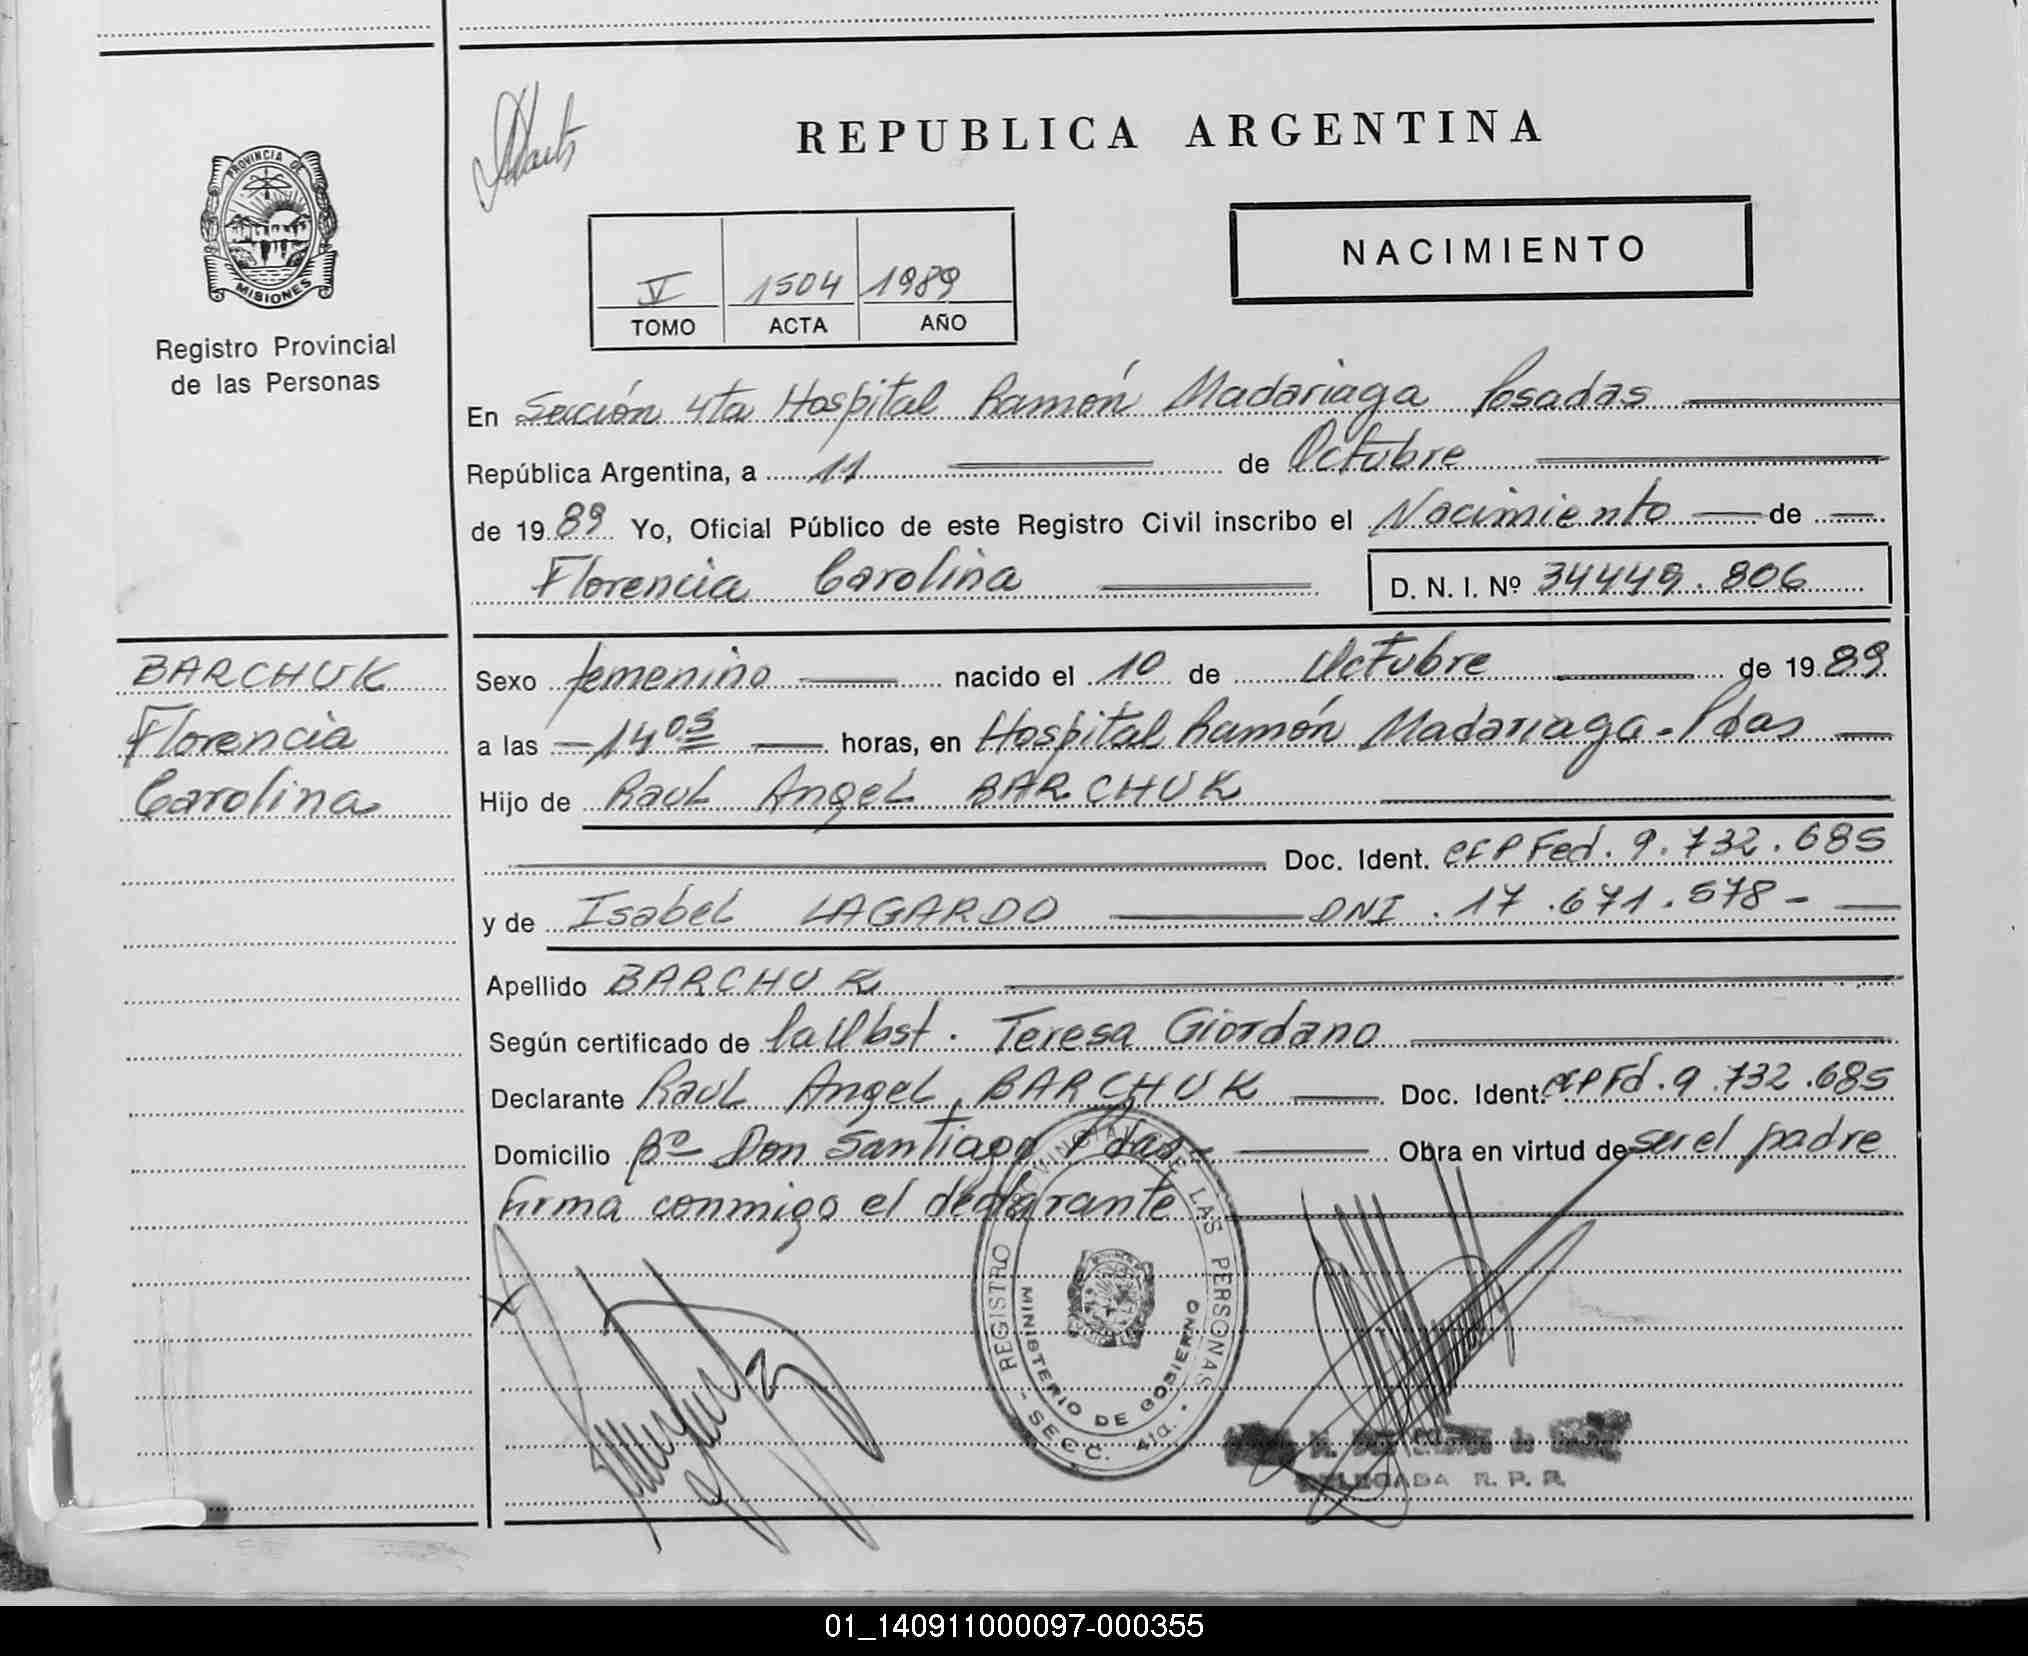 REPUBLICA ARGENTINA
PROVINCIA DE
MISIONES
Registro Provincial
de las Personas
NACIMIENTO
V 1504 1989
TOMO ACTA AÑO
En Sección 4ta Hospital Ramón Madariaga Posadas
República Argentina, a 11 de Octubre
de 1989 Yo, Oficial Público de este Registro Civil inscribo el Nacimiento de
Florencia Carolina D. N. I. Nº 34449.806
BARCHUK
Florencia
Carolina
Sexo femenino nacido el 10 de Octubre de 1989
a las 14 05 horas, en Hospital Ramón Madariaga - Pdas
Hijo de Raul Angel BARCHUK
Doc. Ident. CIP Fed. 9.732.685
y de Isabel LAGARDO DNI. 17.671.578-
Apellido BARCHUK
Según certificado de la Obst. Teresa Giordano
Declarante Raul Angel BARCHUK Doc. Ident. CIP Fd. 9.732.685
Domicilio Bº Don Santiago Pdas- Obra en virtud de ser el padre
firma conmigo el declarante
REGISTRO PROVINCIAL DE LAS PERSONAS
MINISTERIO DE GOBIERNO
- SECC. 4ta. -
DELEGADA R. P. P.
01_140911000097-000355